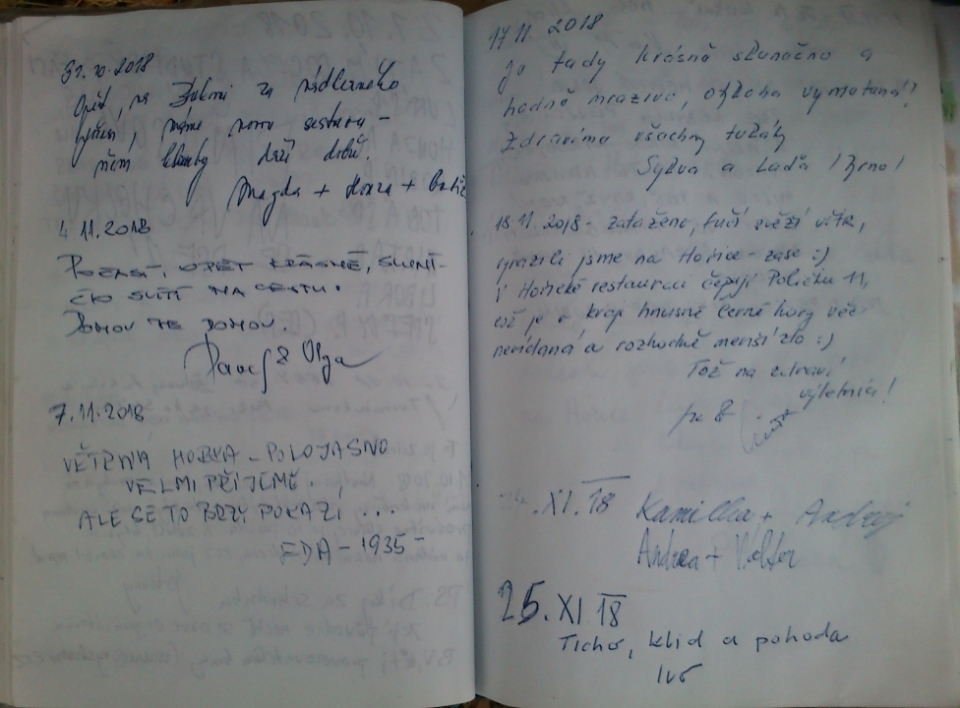 31.10.2018
Opět na za nádherného
počasí, máme novou sestavu -
drží dobře.
Magda + Honza +
4.11.2018
POČASÍ, OPĚT KRÁSNÉ, SLUNÍ-
ČKO SVÍTÍ NA CESTU.
DOMOV JE DOMOV.
Pavel & Olga
7.11.2018
VĚTRNÁ HORKA - POLOJASNO
VELMI PŘÍJEMĚ.
ALE SE TO BRZY POKAZÍ ...
EDA - 1935 -
17.11 2018
je tady krásně slunečno a
hodně mrazivo, obloha vymetená!
Zdravíme všechny tuláky
Sylva a Laďa Brno!
18.11.2018 - zataženo, fučí svěží vítr,
vyrazili jsme na Hořice - zase :)
V Hořické restauraci čepují Poličku 11,
což je v kraji hnusné černé hory věc
nevídaná a rozhodně menší zlo :)
Tož na zdraví
výletníci!
XI. 18 Kamilka + Andrej
Andrea +
25. XI 18
Ticho, klid a pohoda
Ivo